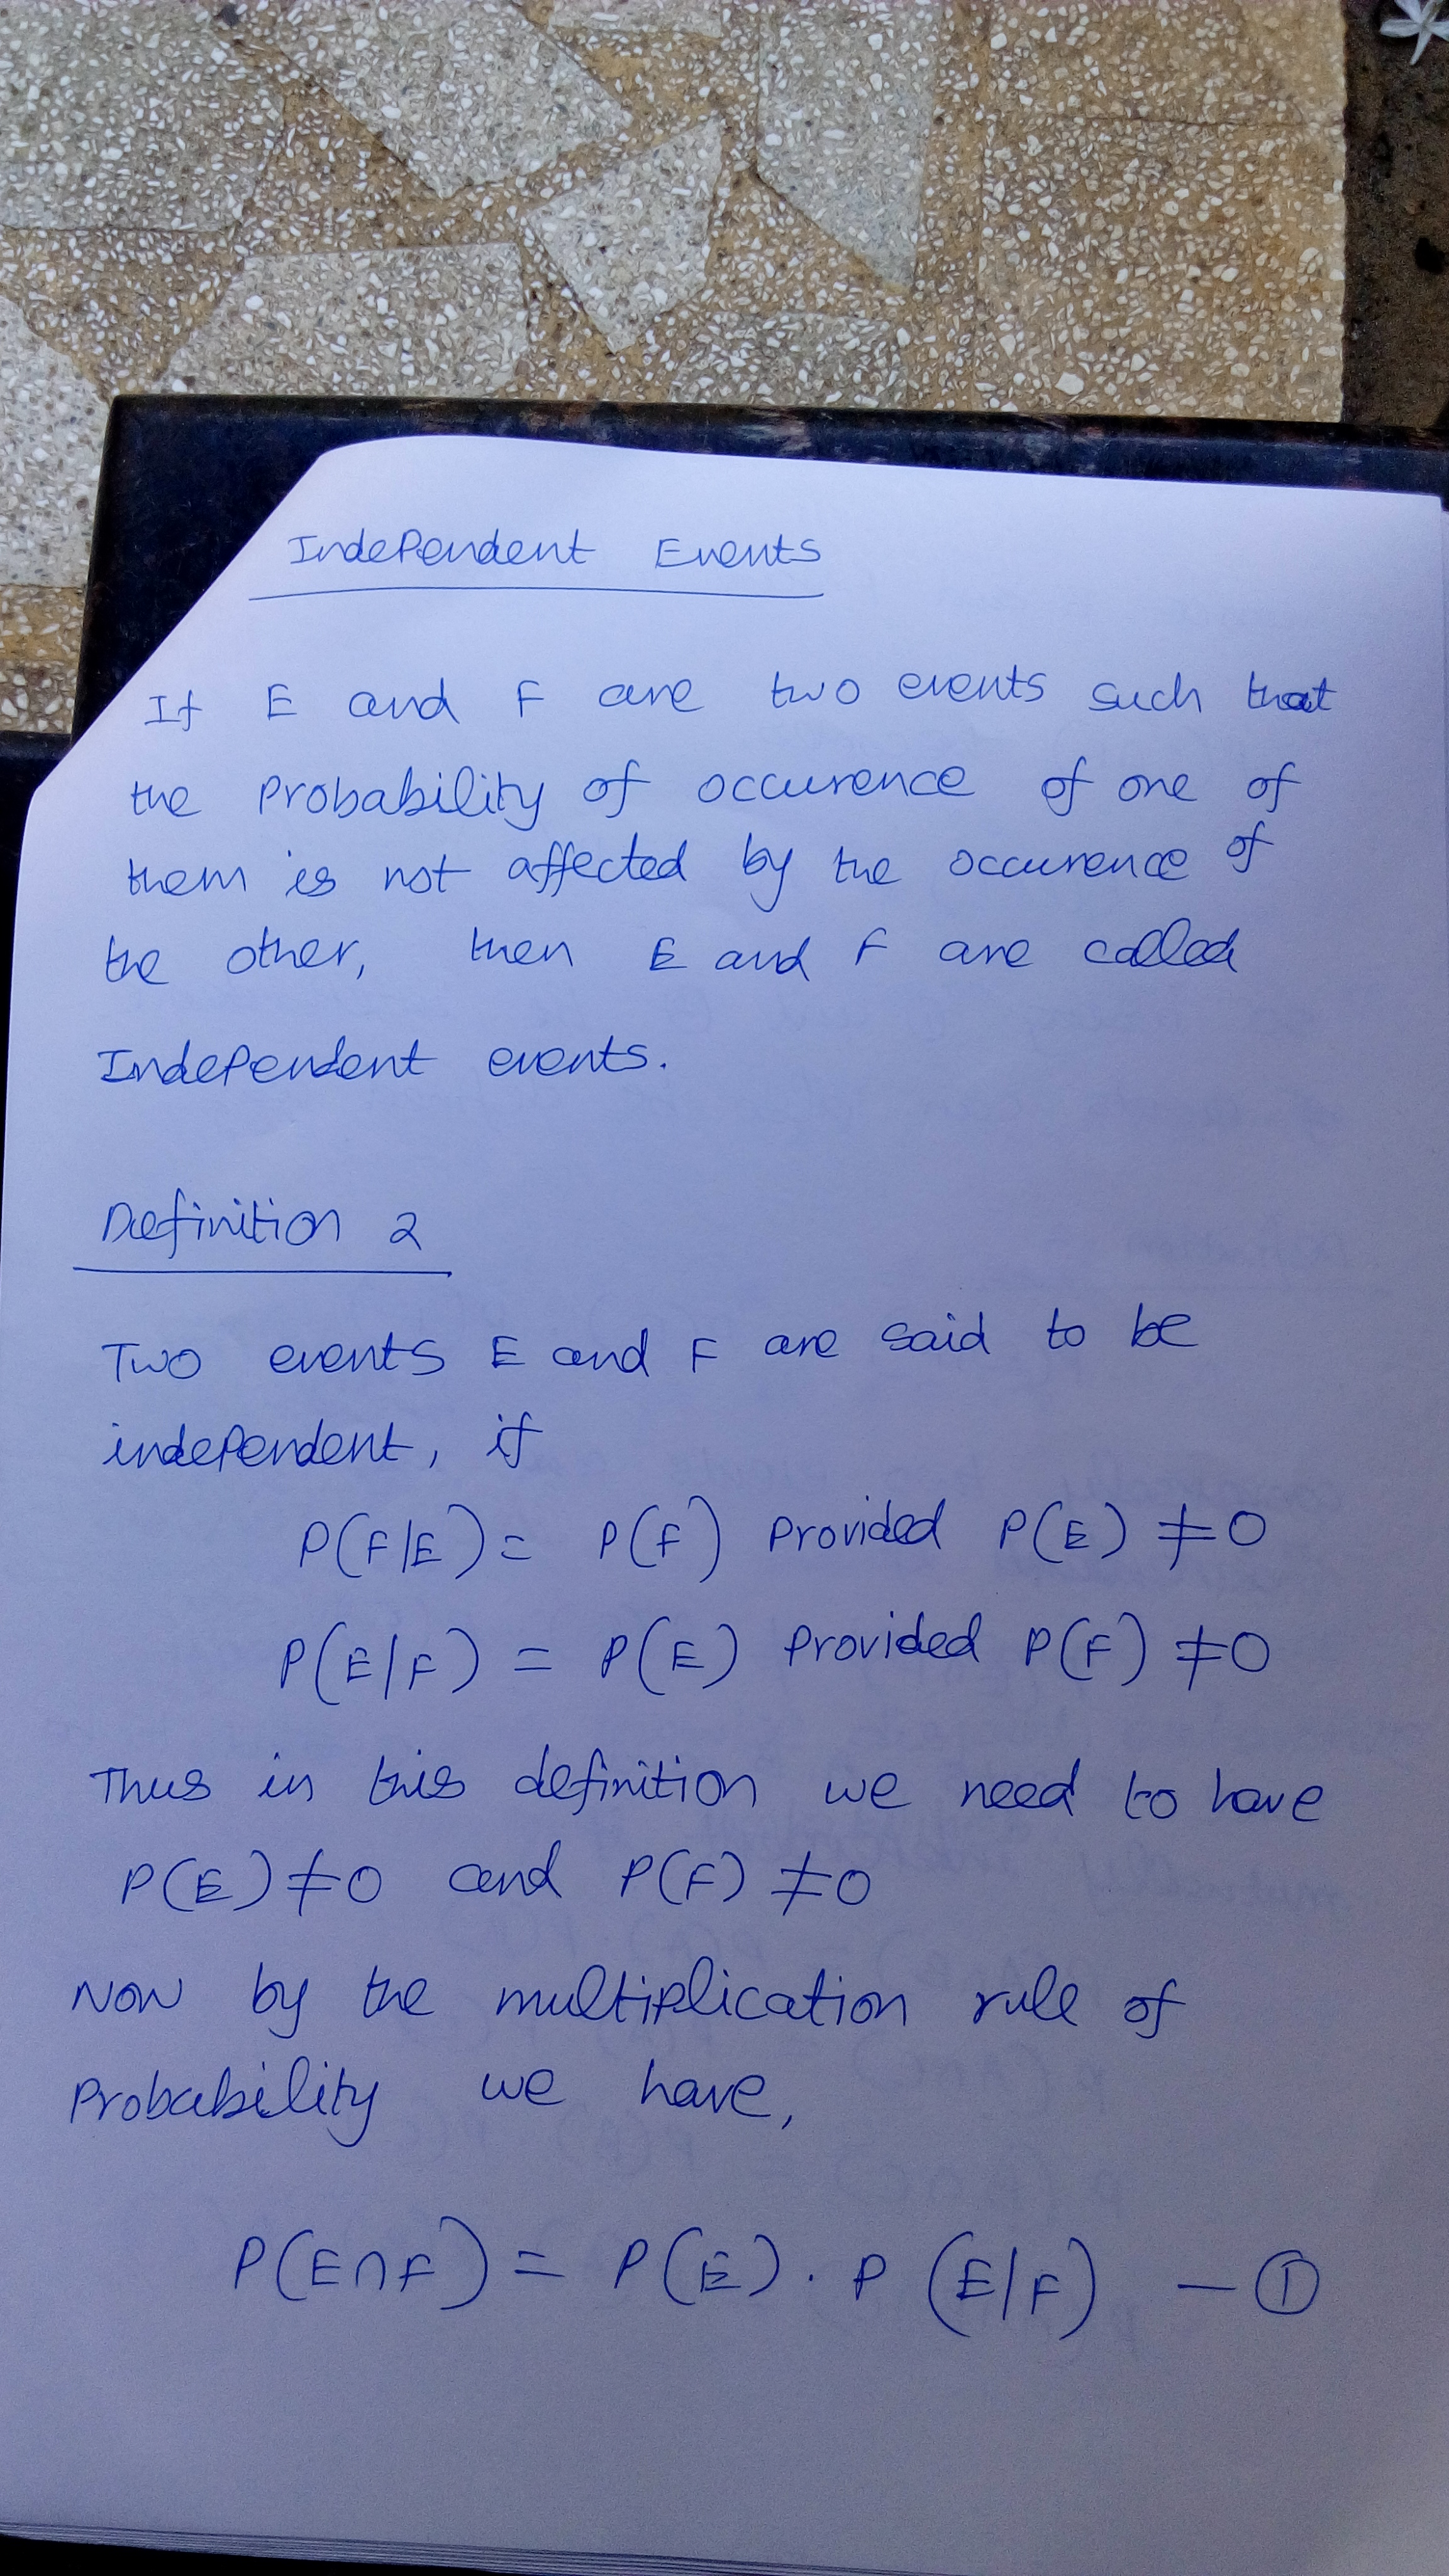 Independent Events
If E and F are two events such that
the probability of occurence of one of
them is not affected by the occurence of
the other, then E and F are called
Independent events.
Definition 2
Two events E and F are said to be
independent, if
P(F|E) = P(F) provided P(E) ≠ 0
P(E|F) = P(E) provided P(F) ≠ 0
Thus in this definition we need to have
P(E) ≠ 0 and P(F) ≠ 0
Now by the multiplication rule of
Probability we have,
P(E∩F) = P(E) . P (E|F) — ①